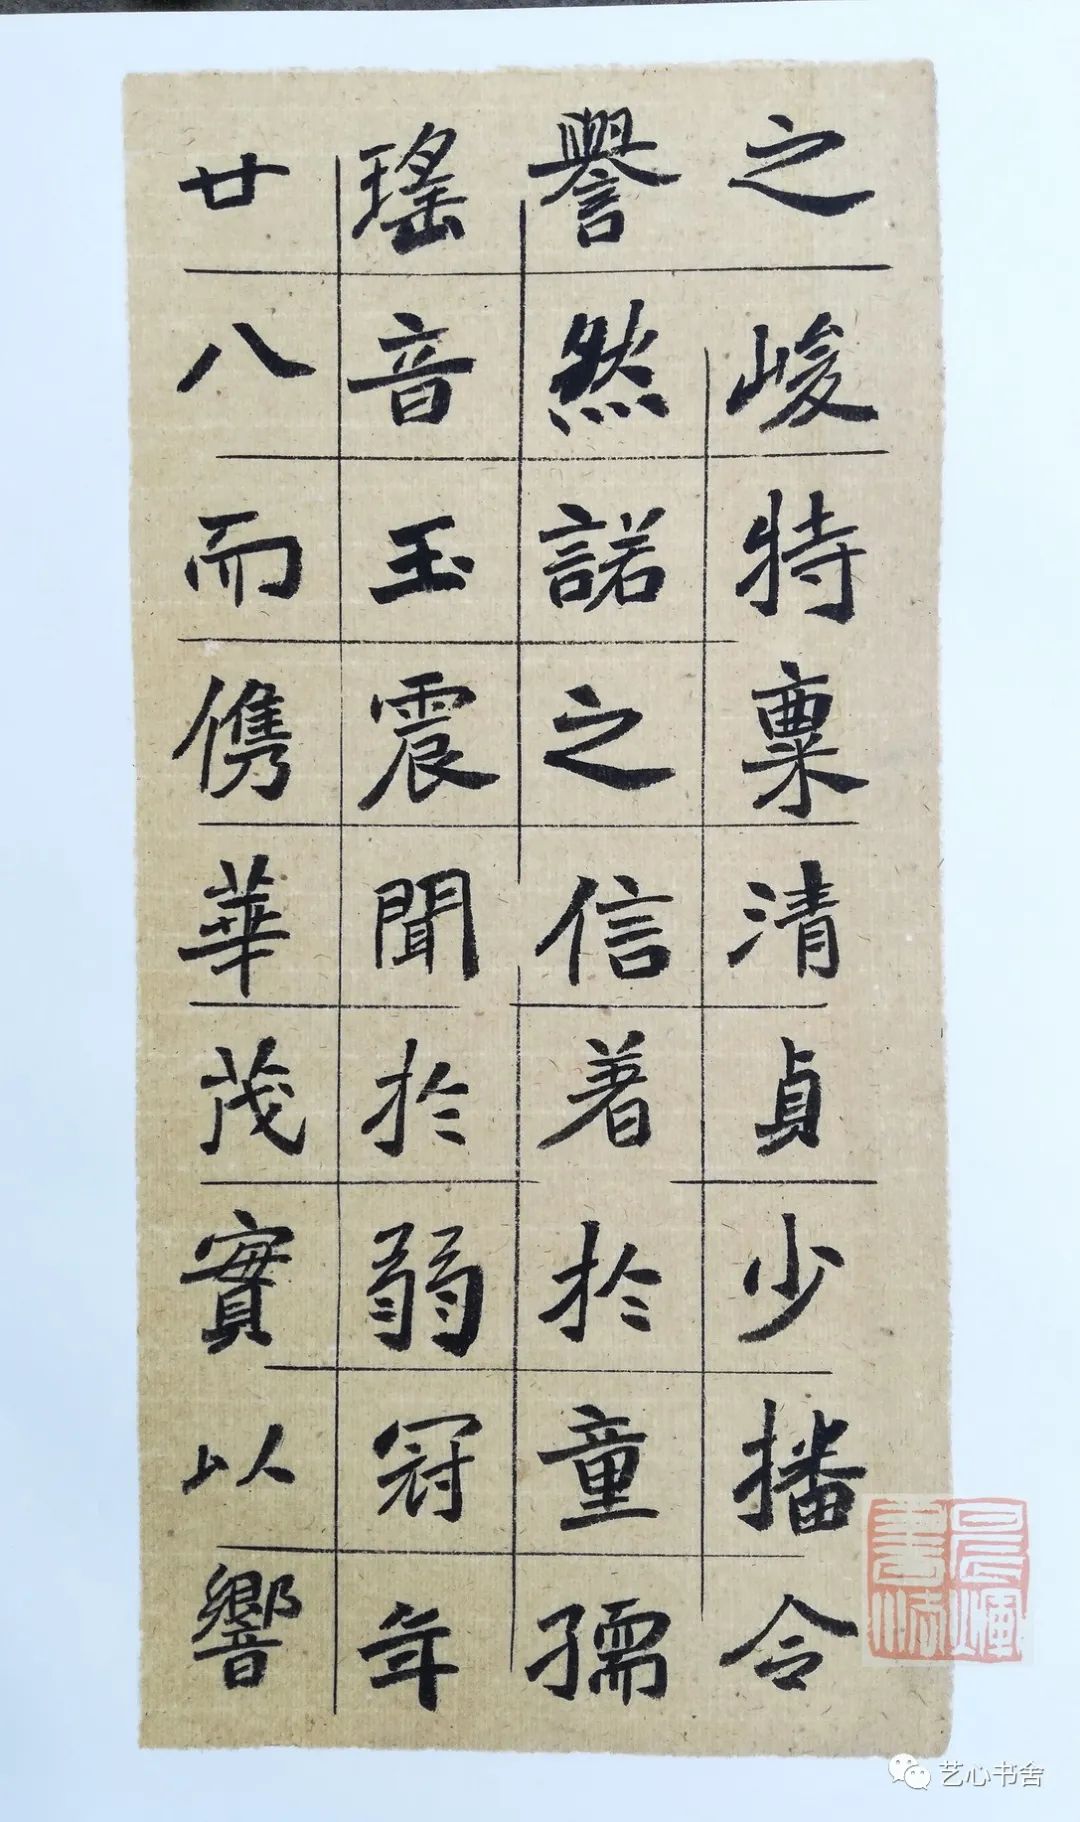 之峻特稟清貞少播令
譽然諾之信著於童孺
瑤音玉震聞於弱冠年
廿八而儁華茂實以響
艺心书舍